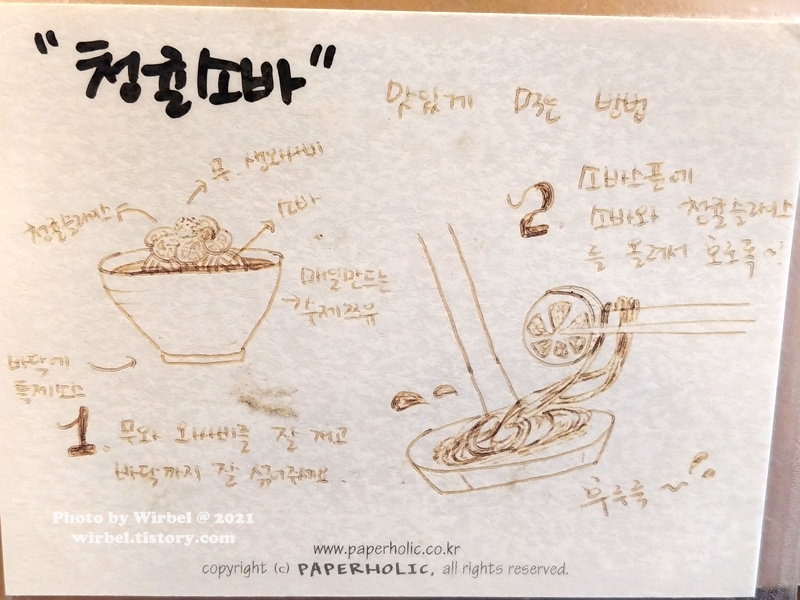 "청귤소바"
맛있게 먹는 방법
무. 생와사비
청귤슬라이스
소바
매일만드는
수제쯔유
바닥에
특제소스
1. 무와 와싸비를 잘 개고
바닥까지 잘 섞어주세요.
2. 소바스푼에
소바와 청귤슬라이스
를 올려서 호로록~!
후루룩~
Photo by Wirbel @ 2021
wirbel.tistory.com
www.paperholic.co.kr
copyright (c) PAPERHOLIC, all rights reserved.